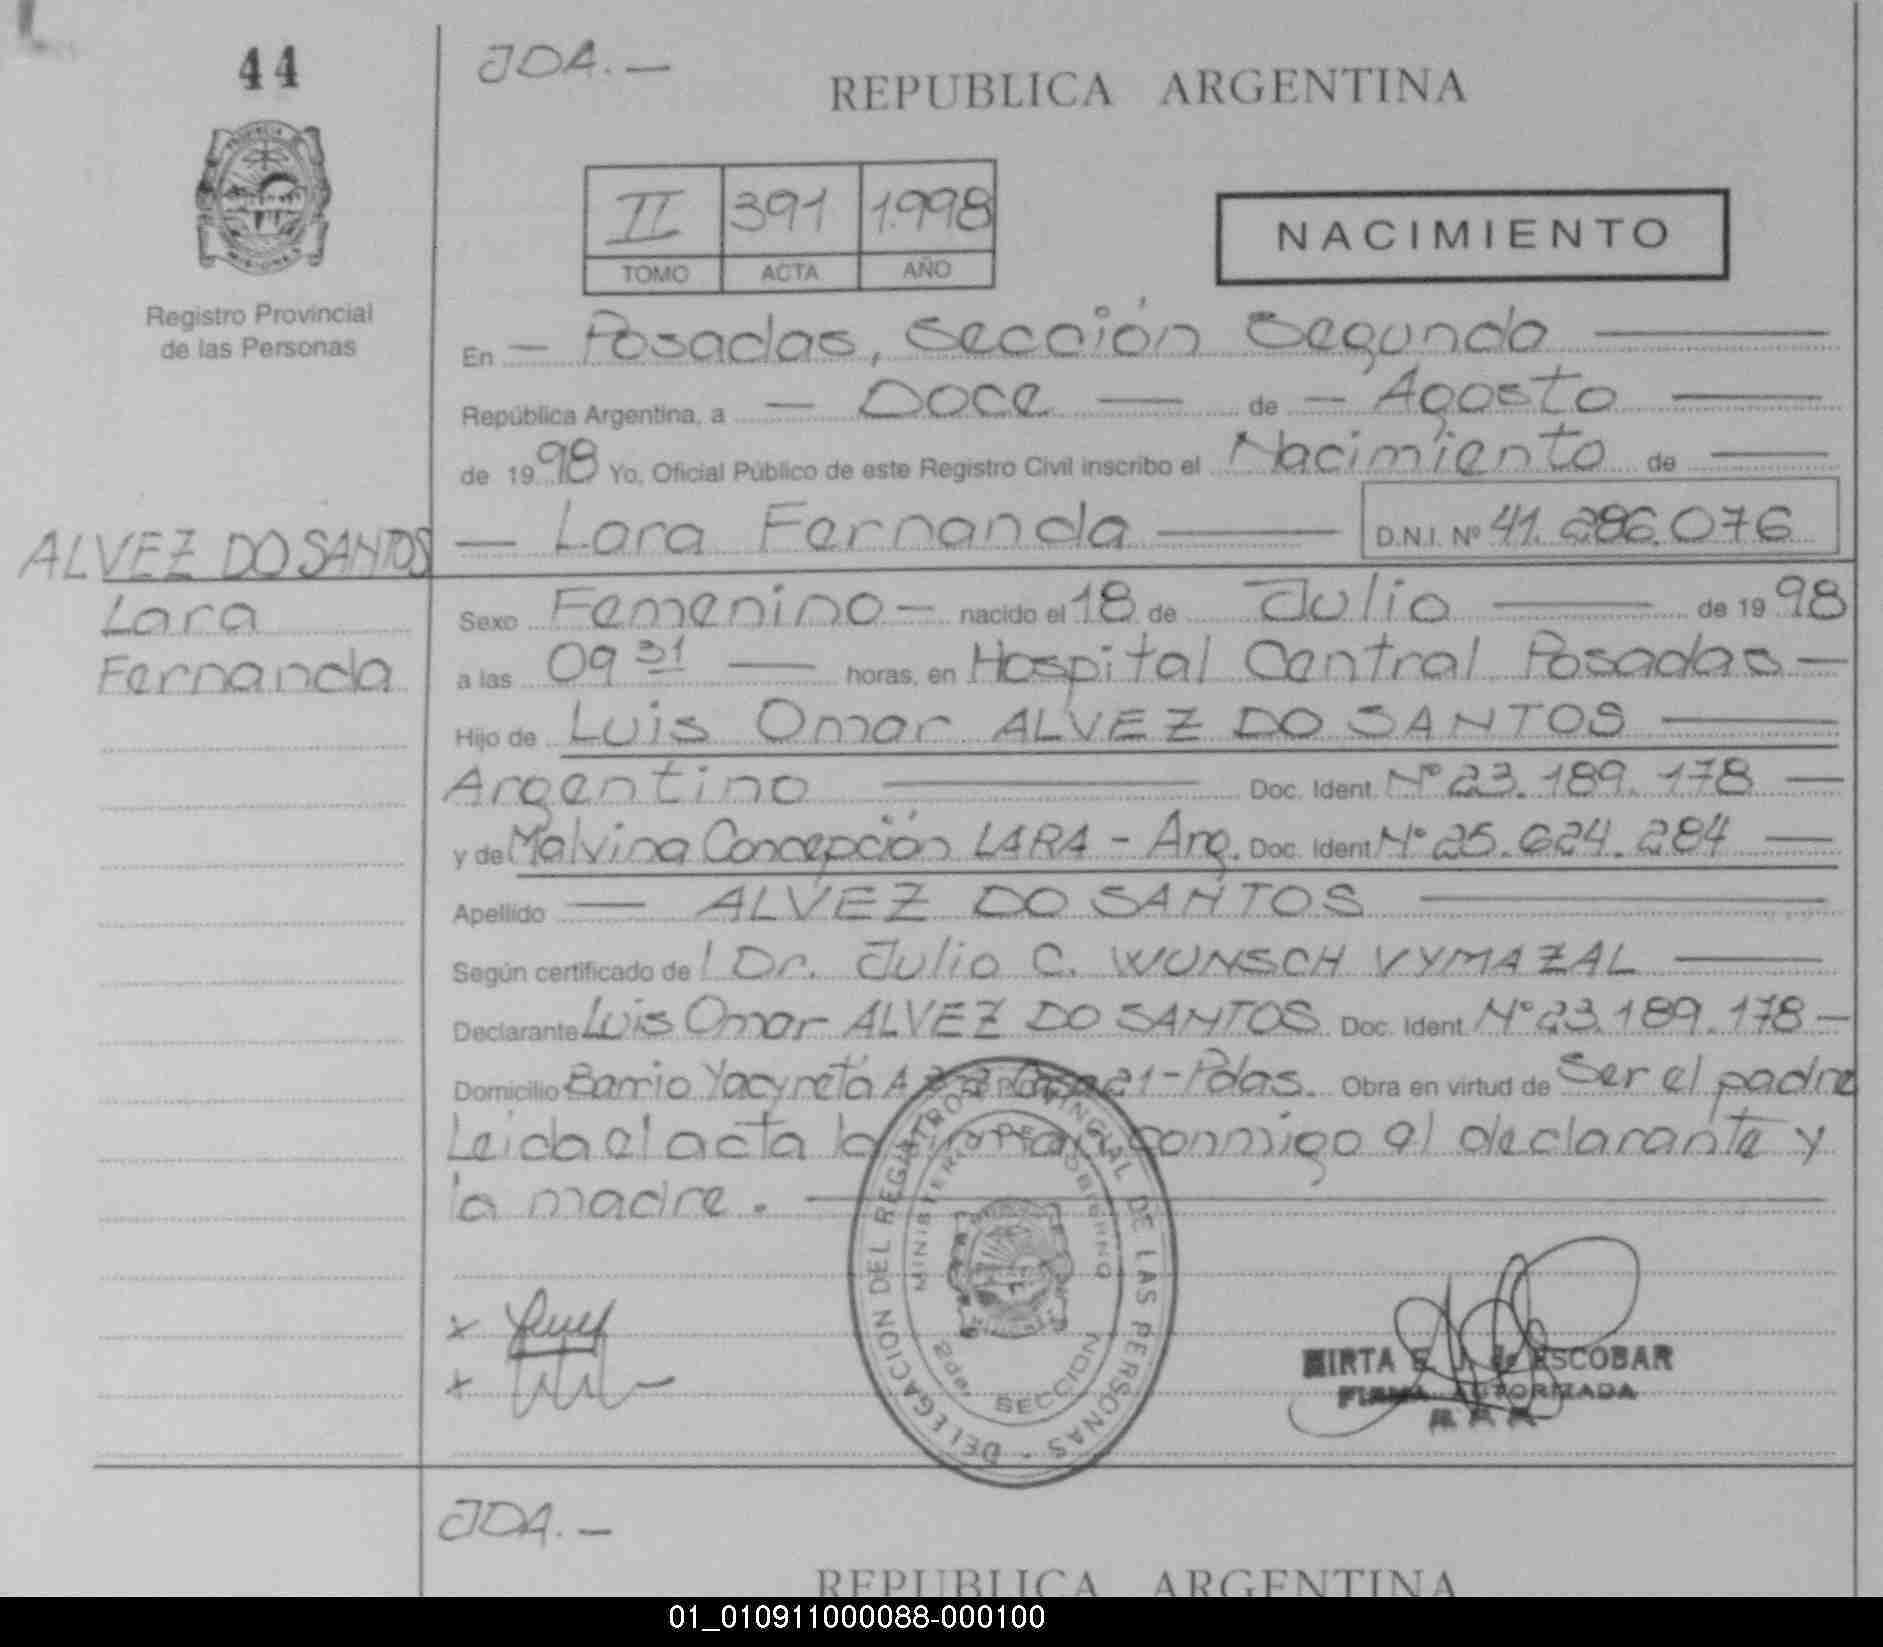 44
JDA.—
REPUBLICA ARGENTINA
PROVINCIA DE
MISIONES
Registro Provincial
de las Personas
II 391 1.998
TOMO ACTA AÑO
NACIMIENTO
En — Posadas, Sección Segunda —
República Argentina, a — Doce — de — Agosto —
de 1998 Yo, Oficial Público de este Registro Civil inscribo el Nacimiento de —
ALVEZ DO SANTOS
Lara
Fernanda
— Lara Fernanda — D.N.I. Nº 41.286.076
Sexo Femenino — nacido el 18 de Julio — de 1998
a las 09 31 — horas, en Hospital Central Posadas —
Hijo de Luis Omar ALVEZ DO SANTOS —
Argentino — Doc. Ident. Nº 23.189.178 —
y de Malvina Concepción LARA - Arg. Doc. Ident Nº 25.624.284 —
Apellido — ALVEZ DO SANTOS —
Según certificado del Dr. Julio C. WUNSCH VYMAZAL —
Declarante Luis Omar ALVEZ DO SANTOS Doc. Ident. Nº 23.189.178 —
Domicilio Barrio Yacyretá A 21 - Pdas. Obra en virtud de Ser el padre
Leida el acta la conmigo el declarante y
la madre. —
DELEGACION DEL REGISTRO PROVINCIAL DE LAS PERSONAS
MINISTERIO DE GOBIERNO
2da. SECCION
MIRTA E. J. de ESCOBAR
FIRMA AUTORIZADA
JDA.—
REPUBLICA ARGENTINA
01_010911000088-000100